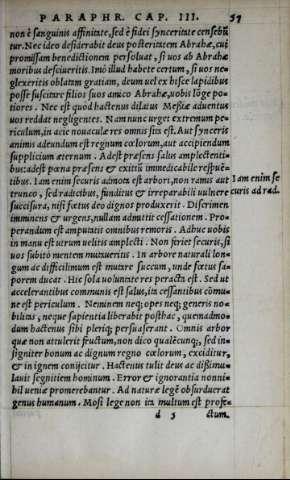 PARAPHR. CAP. III. 57
non è sanguinis affinitate, sed è fidei synceritate censebũ
tur. Nec ideo desiderabit deus posteritatem Abrahæ, cui
promissam benedictionem persoluat, si uos ab Abrahæ
moribus desciueritis. Imò illud habete certum, si uos ne-
glexeritis oblatam gratiam, deum uel ex hisce lapidibus
posse suscitare filios suos amico Abrahæ, uobis lõge po-
tiores. Nec est quod hactenus dilatus Meßiæ aduentus
uos reddat negligentes. Nam nunc urget extremum pe-
riculum, in acie nouaculæ res omnis sita est. Aut synceris
animis adeundum est regnum cœlorum, aut accipiendum
supplicium æternum. Adest præsens salus amplectenti-
bus: adest pœna præsens & exitiũ immedicabile respuẽ-
tibus. Iam enim securis admota est arbori, non ramis aut
Iam enim se
trunco, sed radicibus, funditus & irreparabili uulnere
curis ad rad.
succisura, nisi fœtus deo dignos produxerit. Discrimen
imminens & urgens, nullam admittit cessationem. Pro-
perandum est amputatis omnibus remoris. Adhuc uobis
in manu est utrum uelitis amplecti. Non feriet securis, si
uos subitò mentem mutaueritis. In arbore naturali lon-
gum ac difficilimum est mutare succum, unde fœtus sa-
porem ducat. Hic sola uoluntate res peracta est. Sed ut
accelerantibus communis est salus, ita cessantibus cõmu-
ne est periculum. Neminem neq; opes neq; generis no-
bilitas, neque sapientia liberabit posthac, quemadmo-
dum hactenus sibi pleriq; persuaserant. Omnis arbor
quæ non attulerit fructum, non dico qualẽcunq;, sed in-
signiter bonum ac dignum regno cœlorum, exciditur,
& in ignem conijcitur. Hactenus tulit deus ac dißimu-
lauit segnitiem hominum. Error & ignorantia nonni-
hil ueniæ promerebantur. Ad naturæ legẽ obsurduerat
genus humanum. Mosi lege non ita multum est profe-
d 3 ctum.